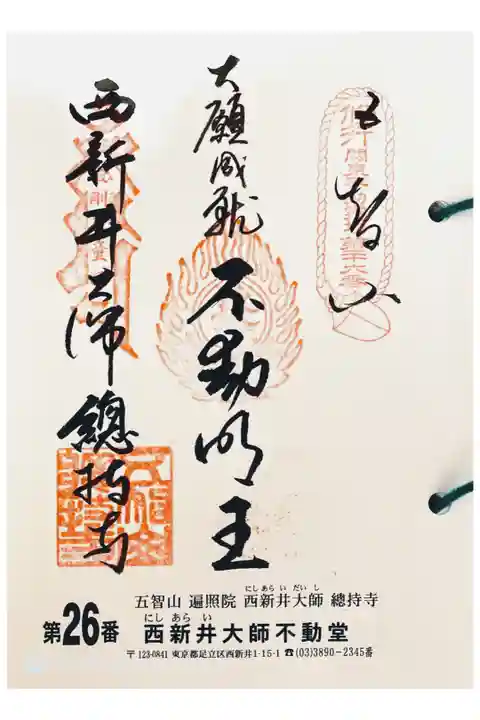 五智山
大願成就
不動明王
西新井大師 總持寺
にしあら い だい し
五智山 遍照院 西新井大師 總持寺
にし あら い
第26番 西新井大師不動堂
〒123-0841 東京都足立区西新井1-15-1 ☎(03)3890−2345番